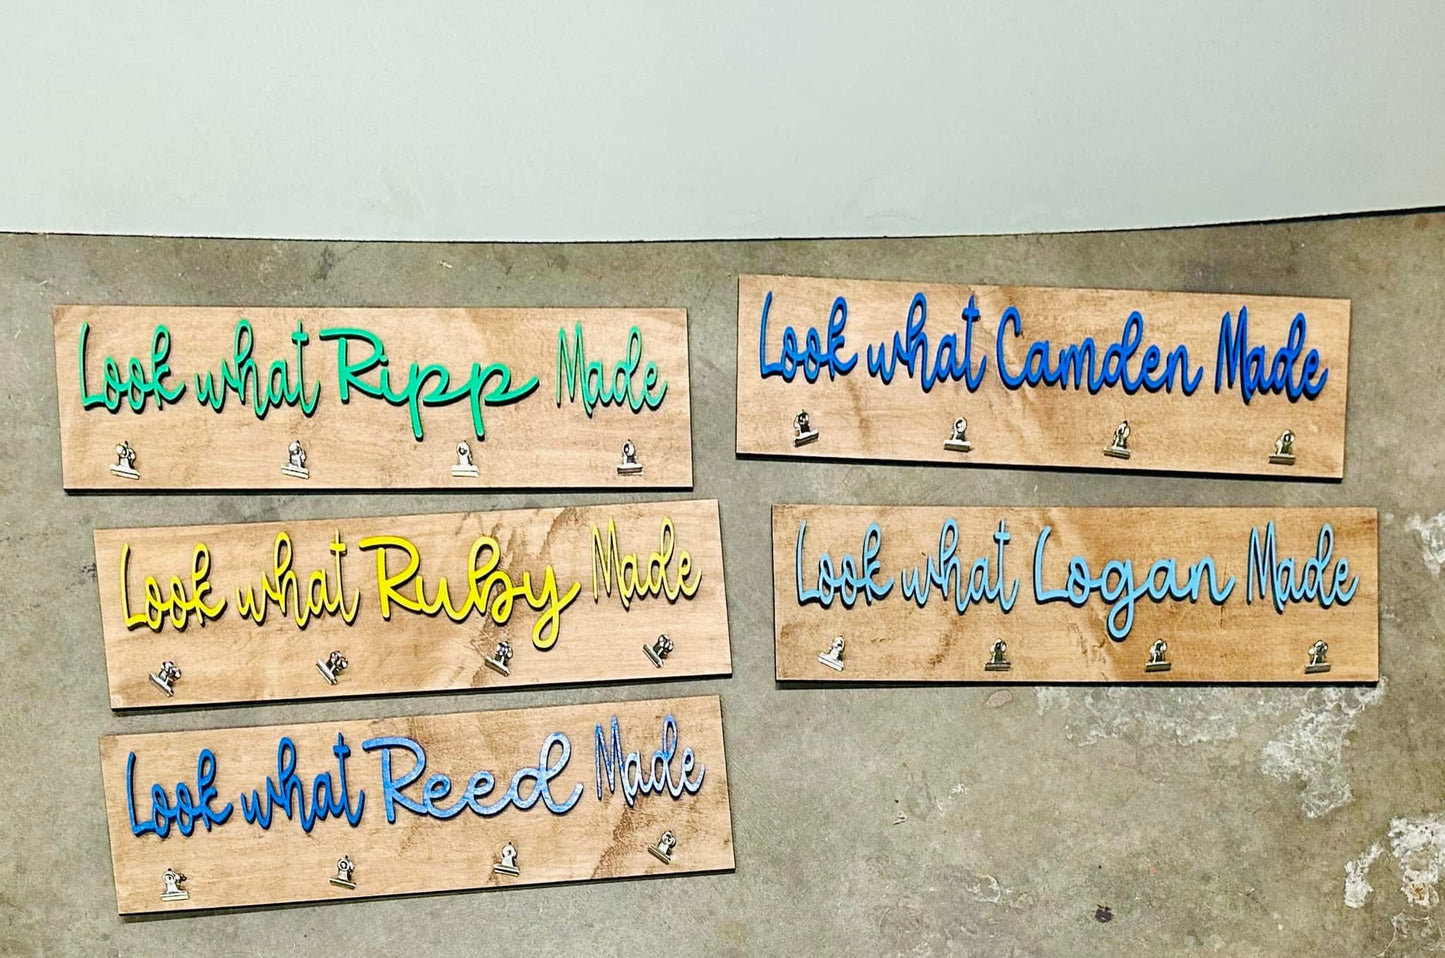 Look what Ripp Made
Look what Ruby Made
Look what Reed Made
Look what Camden Made
Look what Logan Made